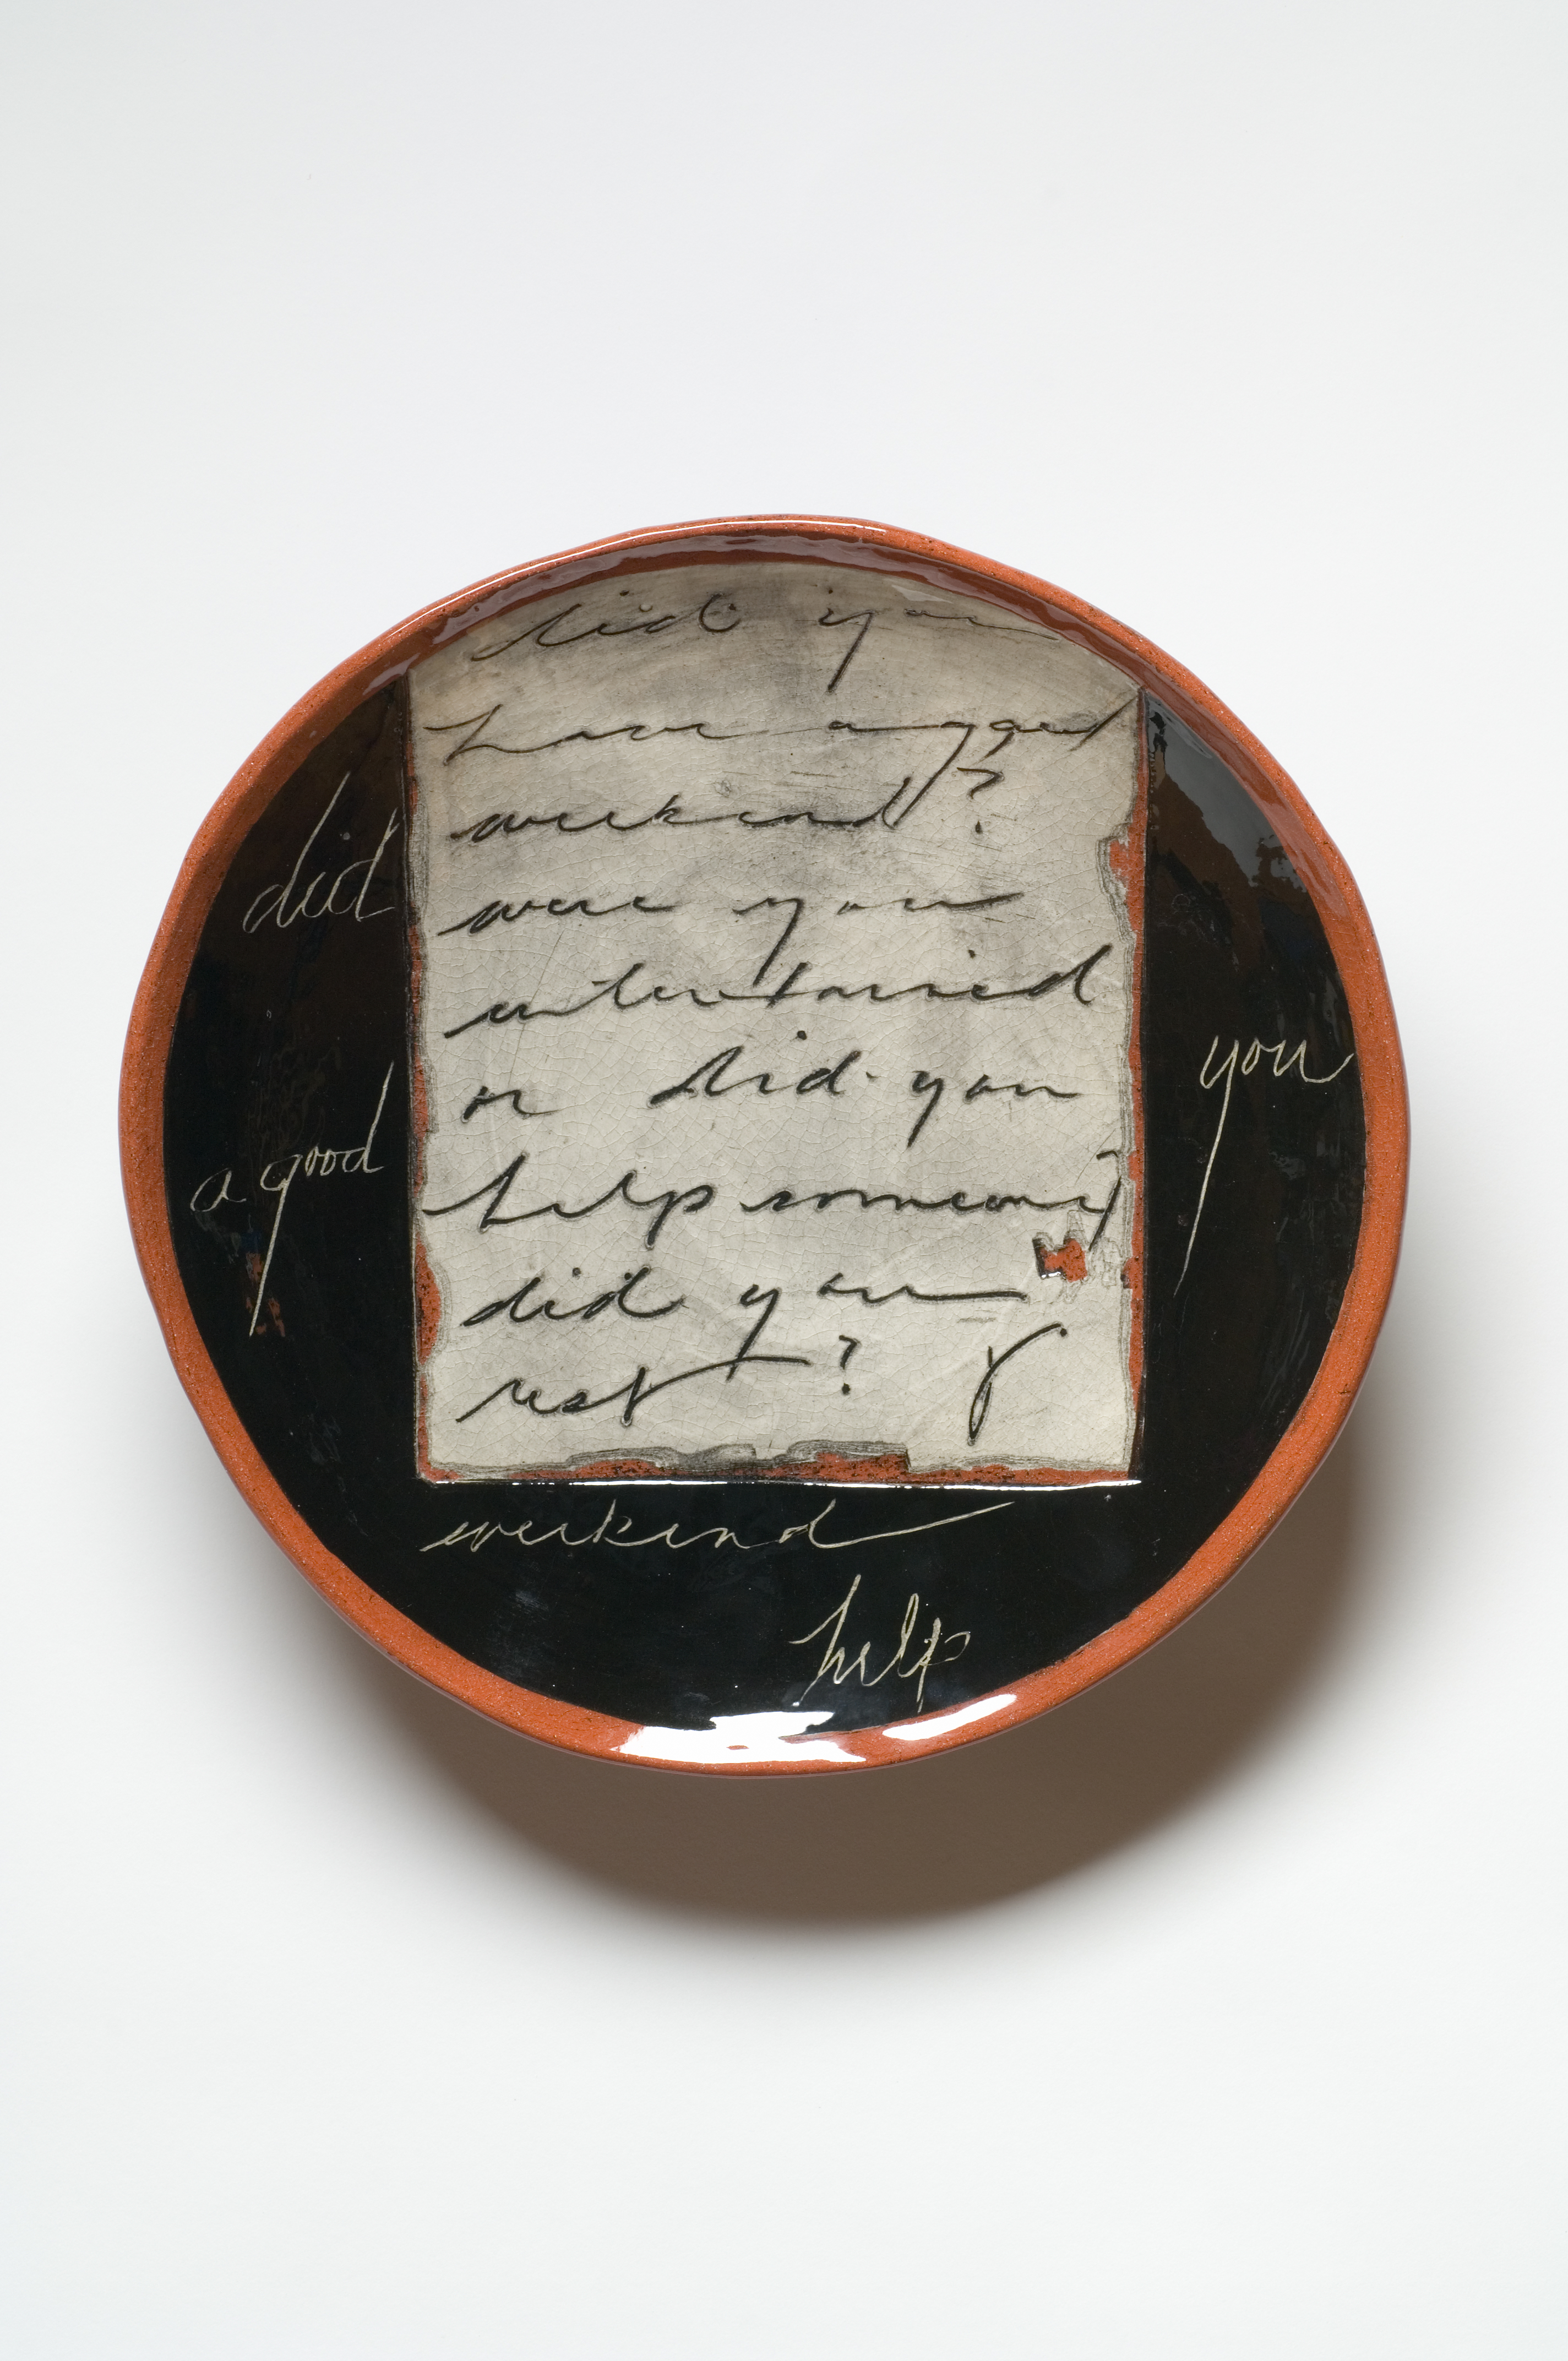 did you
have a good
weekend?
were you
entertained
or did you
help someone
did you
rest?
did
a good
you
weekend
help